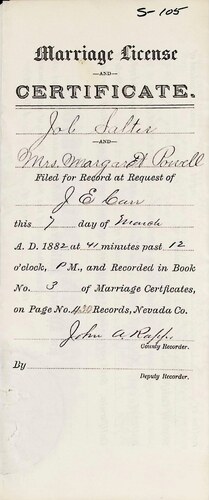 S-105
Marriage License
—AND—
CERTIFICATE.
Job Salter
—AND—
Mrs. Margaret Powell
Filed for Record at Request of
J E Carr
this 7 day of March
A. D. 1882 at 41 minutes past 12
o'clock, P M., and Recorded in Book
No. 3 of Marriage Certificates,
on Page No. 420 Records, Nevada Co.
John A Rapp
County Recorder.
By
Deputy Recorder.